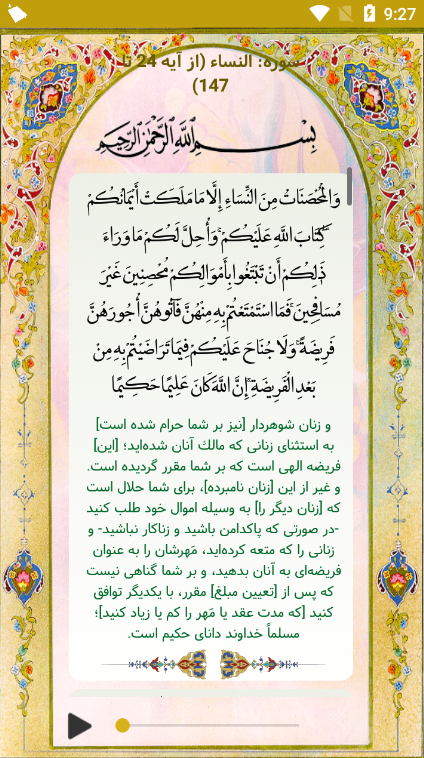 9:27
سوره: النساء (از آیه 24 تا
147)
بسم الله الرحمن الرحیم
وَالْمُحْصَنَاتُ مِنَ النِّسَاءِ إِلَّا مَا مَلَكَتْ أَيْمَانُكُمْ
كِتَابَ اللَّهِ عَلَيْكُمْ ۚ وَأُحِلَّ لَكُمْ مَا وَرَاءَ
ذَٰلِكُمْ أَنْ تَبْتَغُوا بِأَمْوَالِكُمْ مُحْصِنِينَ غَيْرَ
مُسَافِحِينَ ۚ فَمَا اسْتَمْتَعْتُمْ بِهِ مِنْهُنَّ فَآتُوهُنَّ أُجُورَهُنَّ
فَرِيضَةً ۚ وَلَا جُنَاحَ عَلَيْكُمْ فِيمَا تَرَاضَيْتُمْ بِهِ مِنْ
بَعْدِ الْفَرِيضَةِ ۚ إِنَّ اللَّهَ كَانَ عَلِيمًا حَكِيمًا
و زنان شوهردار [نیز بر شما حرام شده است]
به استثنای زنانی که مالك آنان شده‌اید؛ [این]
فریضه الهی است که بر شما مقرر گردیده است.
و غیر از این [زنان نامبرده]، برای شما حلال است
که [زنان دیگر را] به وسیله اموال خود طلب کنید
-در صورتی که پاکدامن باشید و زناکار نباشید- و
زنانی را که متعه کرده‌اید، مَهرشان را به عنوان
فریضه‌ای به آنان بدهید، و بر شما گناهی نیست
که پس از [تعیین مبلغ] مقرر، با یکدیگر توافق
کنید [که مدت عقد یا مَهر را کم یا زیاد کنید]؛
مسلماً خداوند دانای حکیم است.